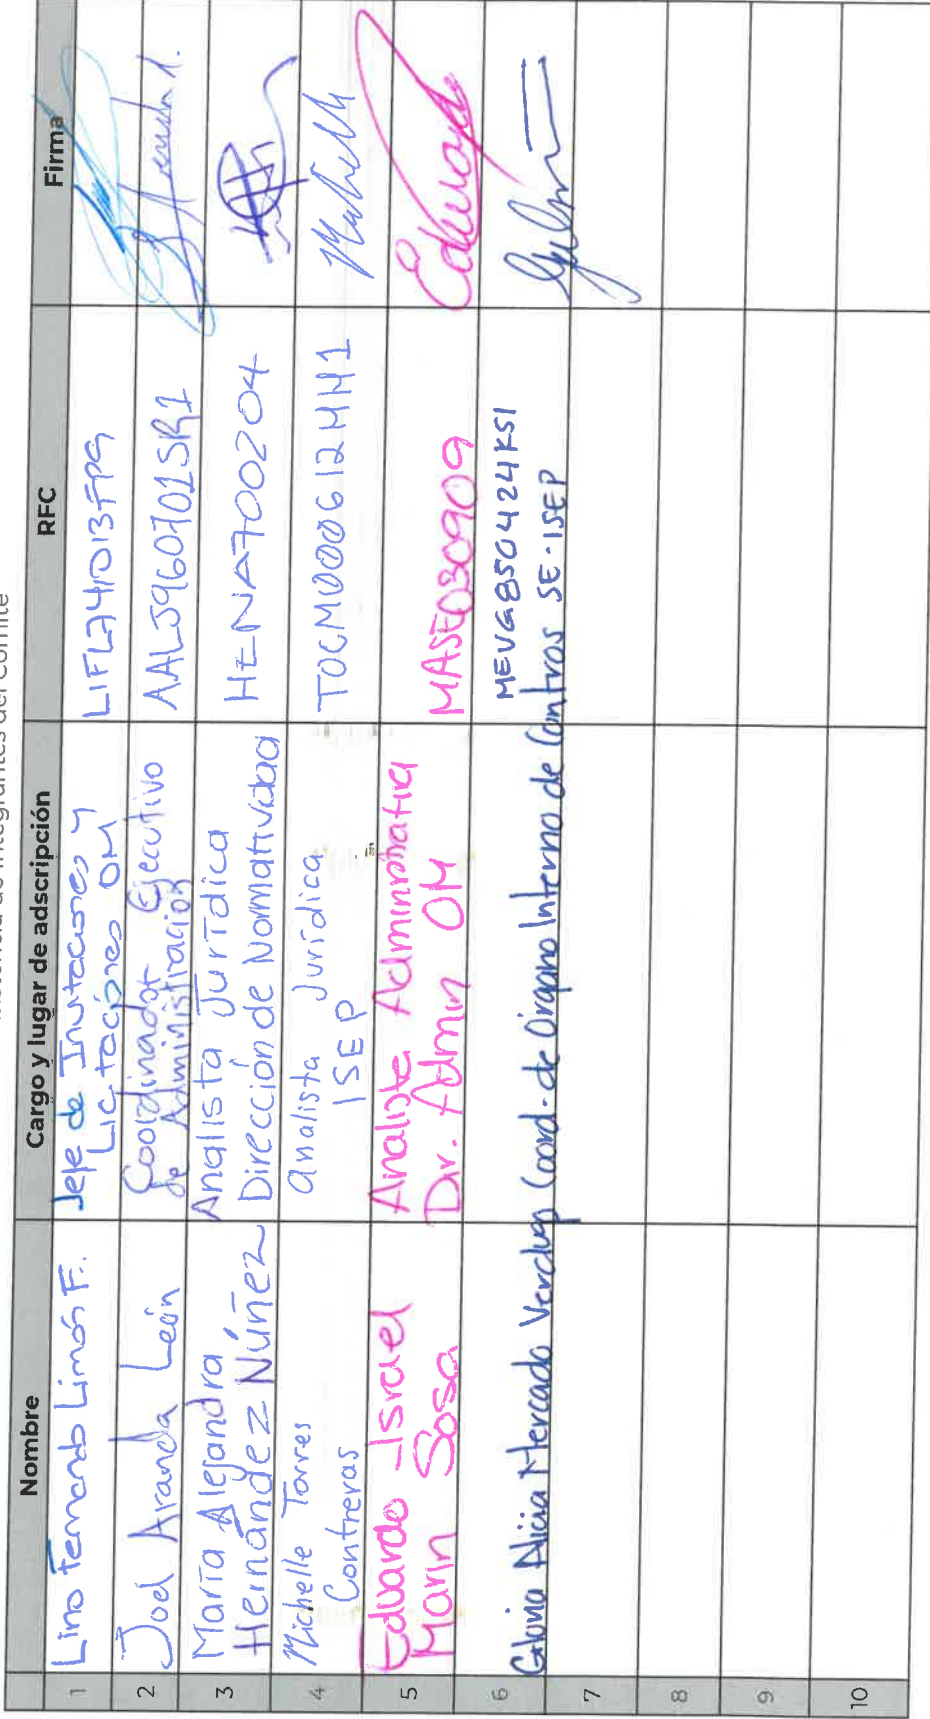 Integrantes del Comité
Nombre
Cargo y lugar de adscripción
RFC
Firma
1
Lino Fernando Limón F.
Jefe de Invitaciones y
Licitaciones OM
2
Joel Aranda León
Coordinador Ejecutivo
de Administración
AALJ960701SR1
3
María Alejandra
Hernández Núñez
Analista Jurídica
Dirección de Normatividad
HENA700204
4
Michelle Torres
Contreras
analista Jurídica
ISEP
TOCM000612MH1
5
Eduardo Israel
Marin Sosa
Analista Administrativa
Dir. Admin OM
MASE030909
Eduardo
6
Gloria Alicia Mercado Verdugo Coord. de Órgano Interno de Contros SE-ISEP
MEVG850424KS1
7
8
9
10